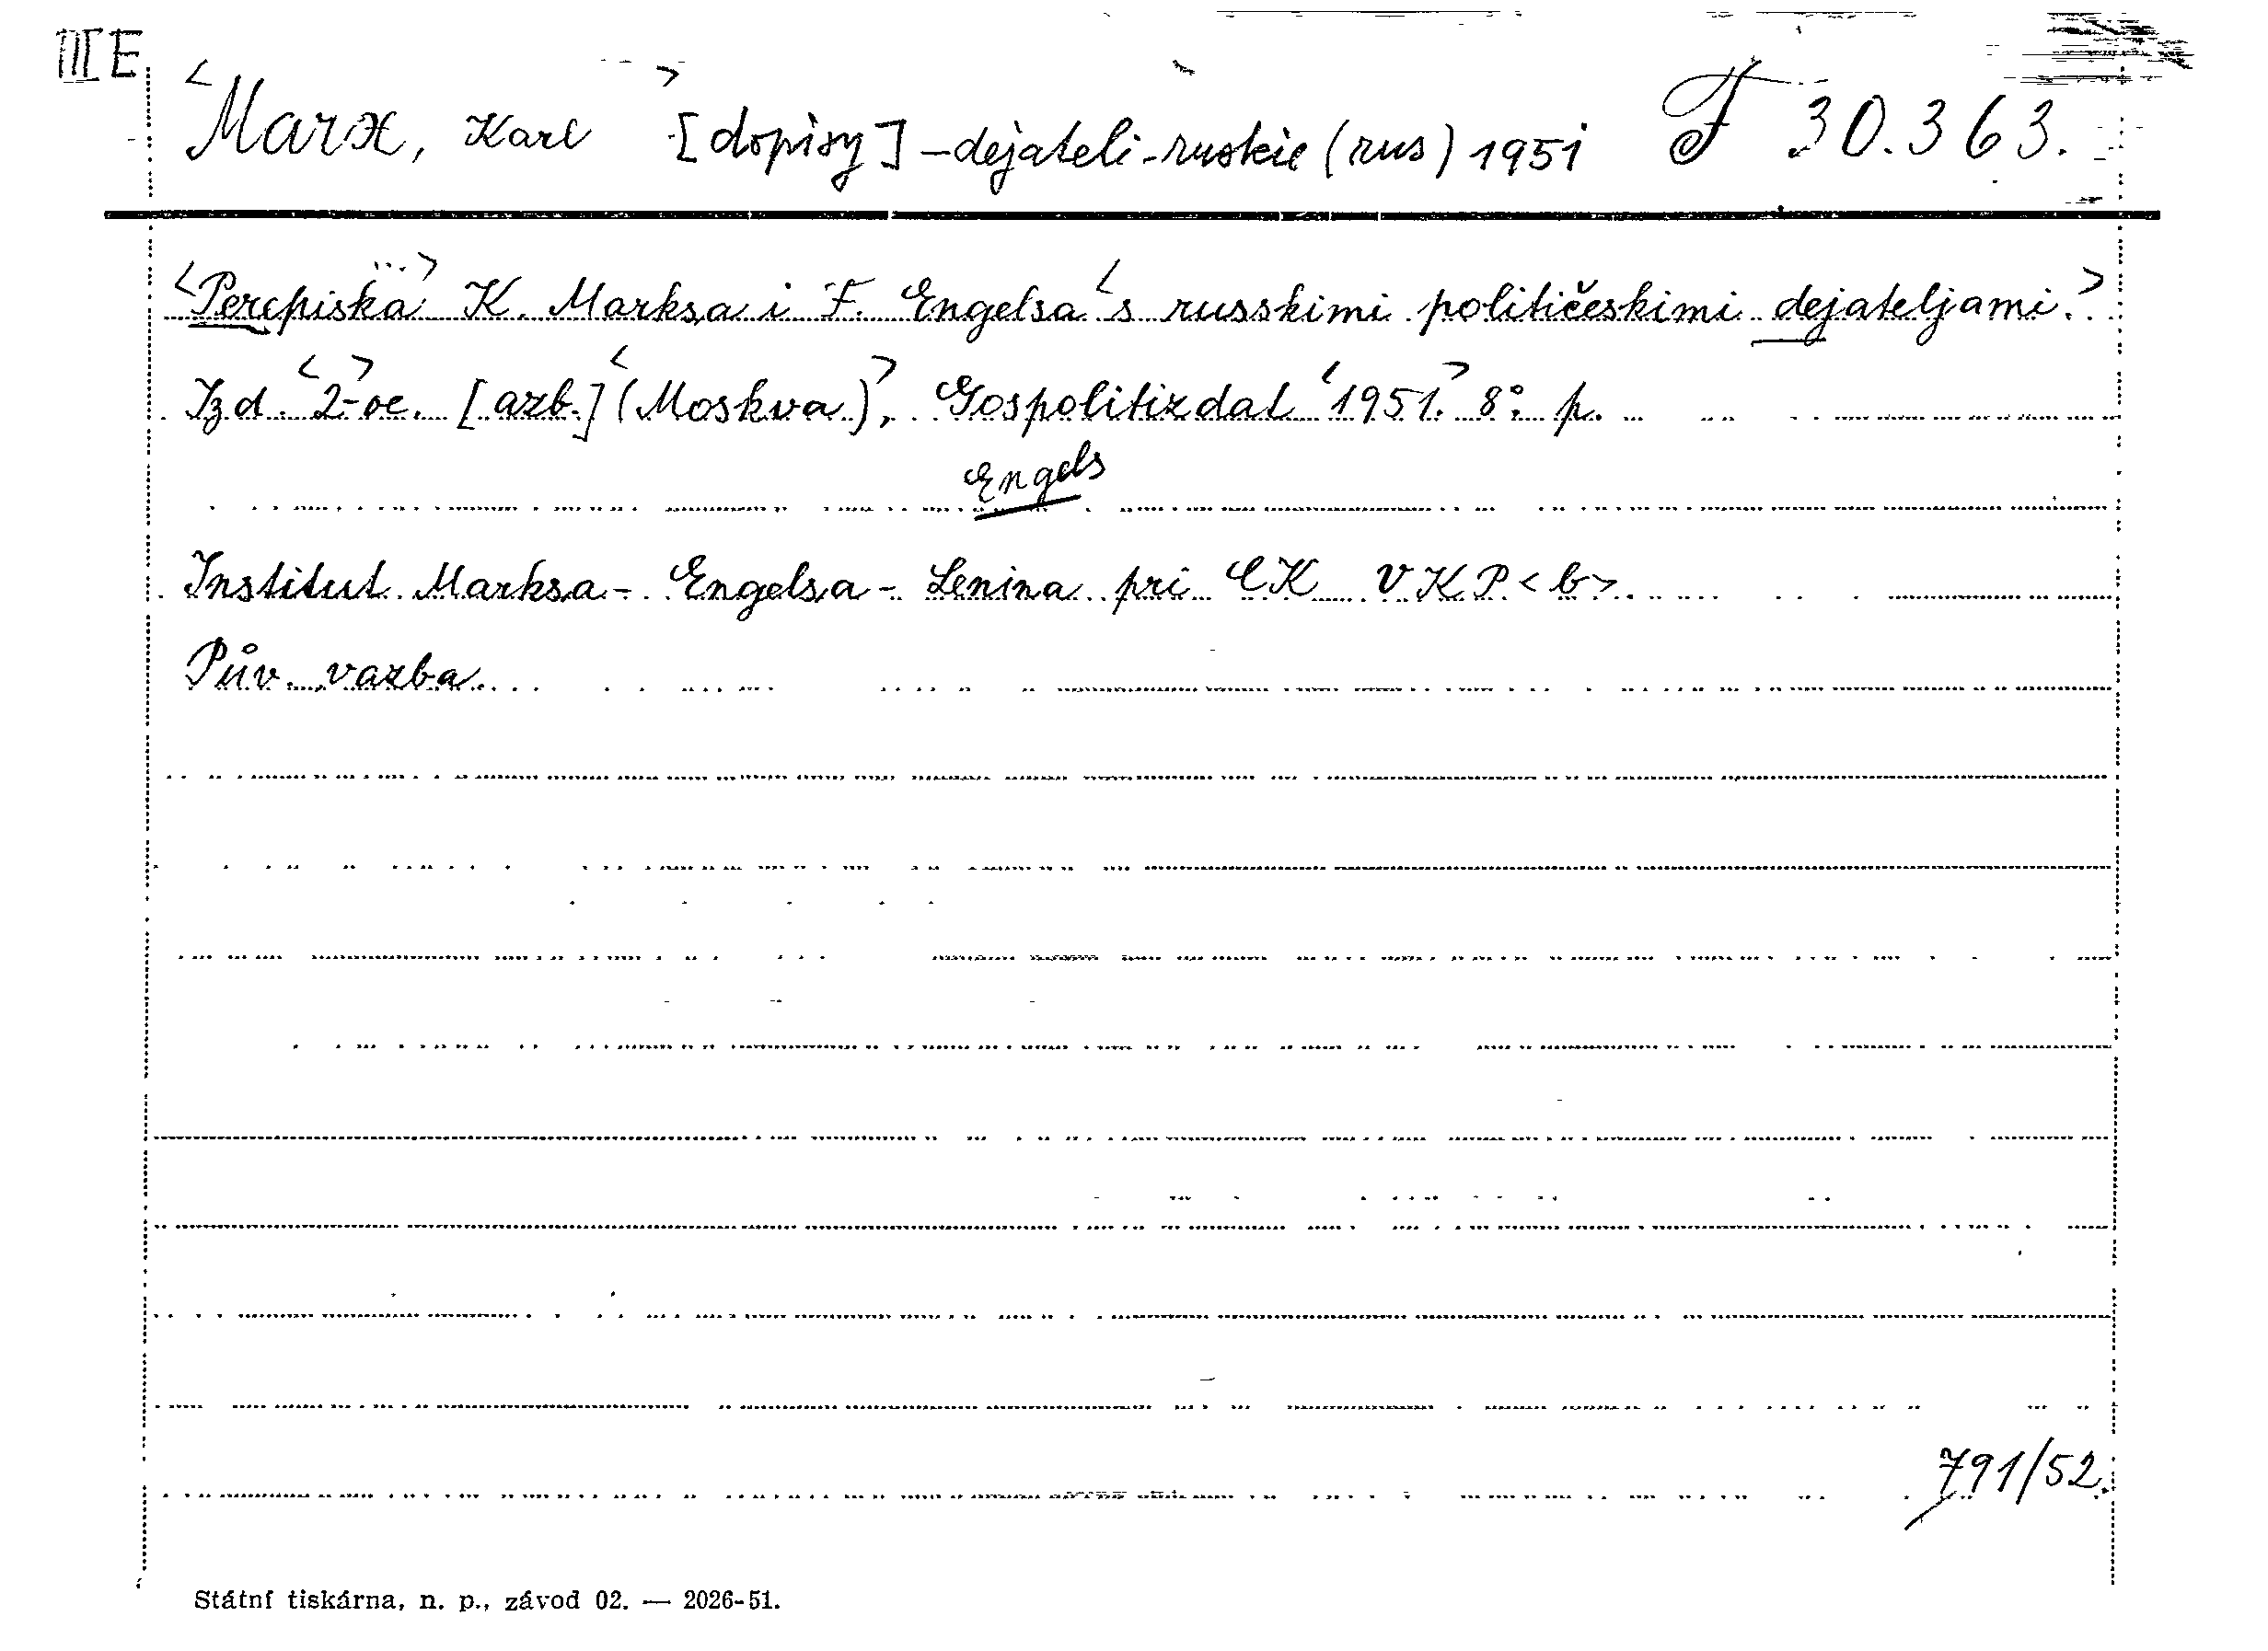 III E
<Marx, Karl> [dopisy] - dejateli - ruskie (rus) 1951 F 30.363.
<Perepiska...> K. Marksa i F. Engelsa <s russkimi političeskimi dejateljami.>
Izd. <2>-oe. [azb.] <(Moskva)>, Gospolitizdat <1951.> 8° p.
Engels
Institut Marksa - Engelsa - Lenina pri CK VKP<b>.
Pův. vazba.
791/52.
Státní tiskárna, n. p., závod 02. — 2026-51.